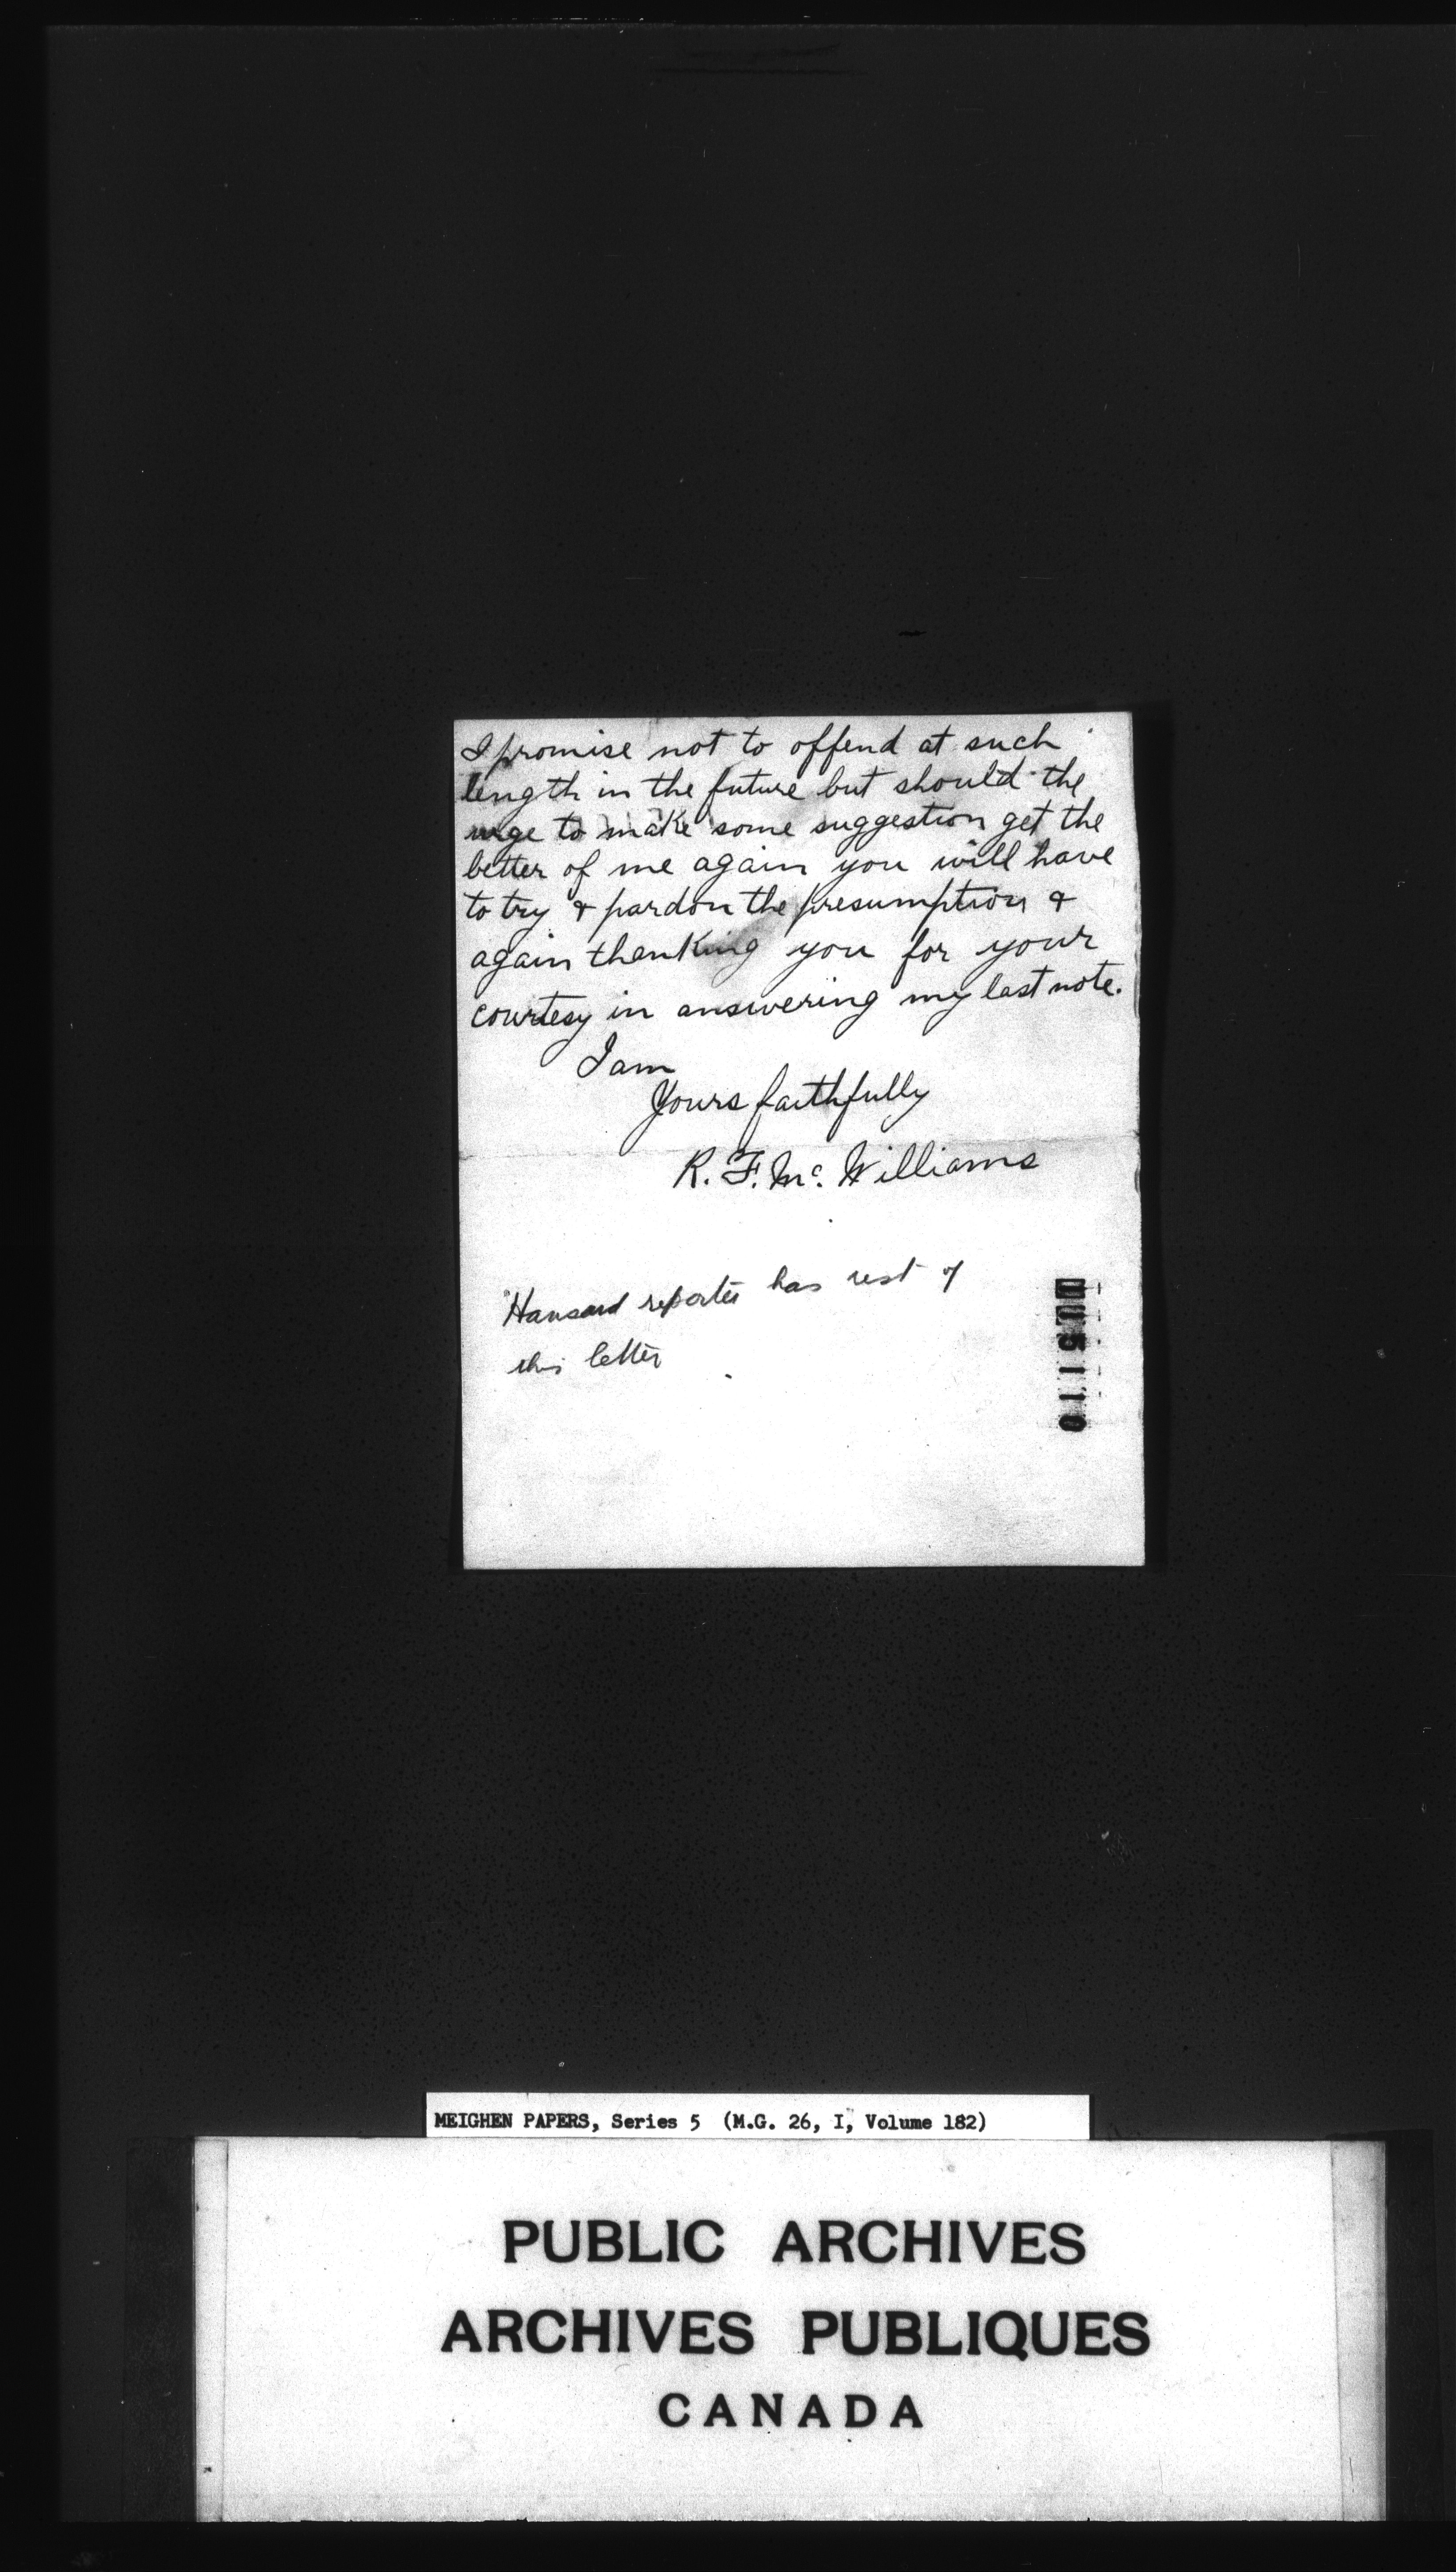 I promise not to offend at such
length in the future but should the
urge to make some suggestion get the
better of me again you will have
to try & pardon the presumption &
again thanking you for your
courtesy in answering my last note.
I am
Yours faithfully
R. F. Mc. Williams
Hansard reporter has rest of
this letter
MEIGHEN PAPERS, Series 5 (M.G. 26, I, Volume 182)
PUBLIC ARCHIVES
ARCHIVES PUBLIQUES
CANADA